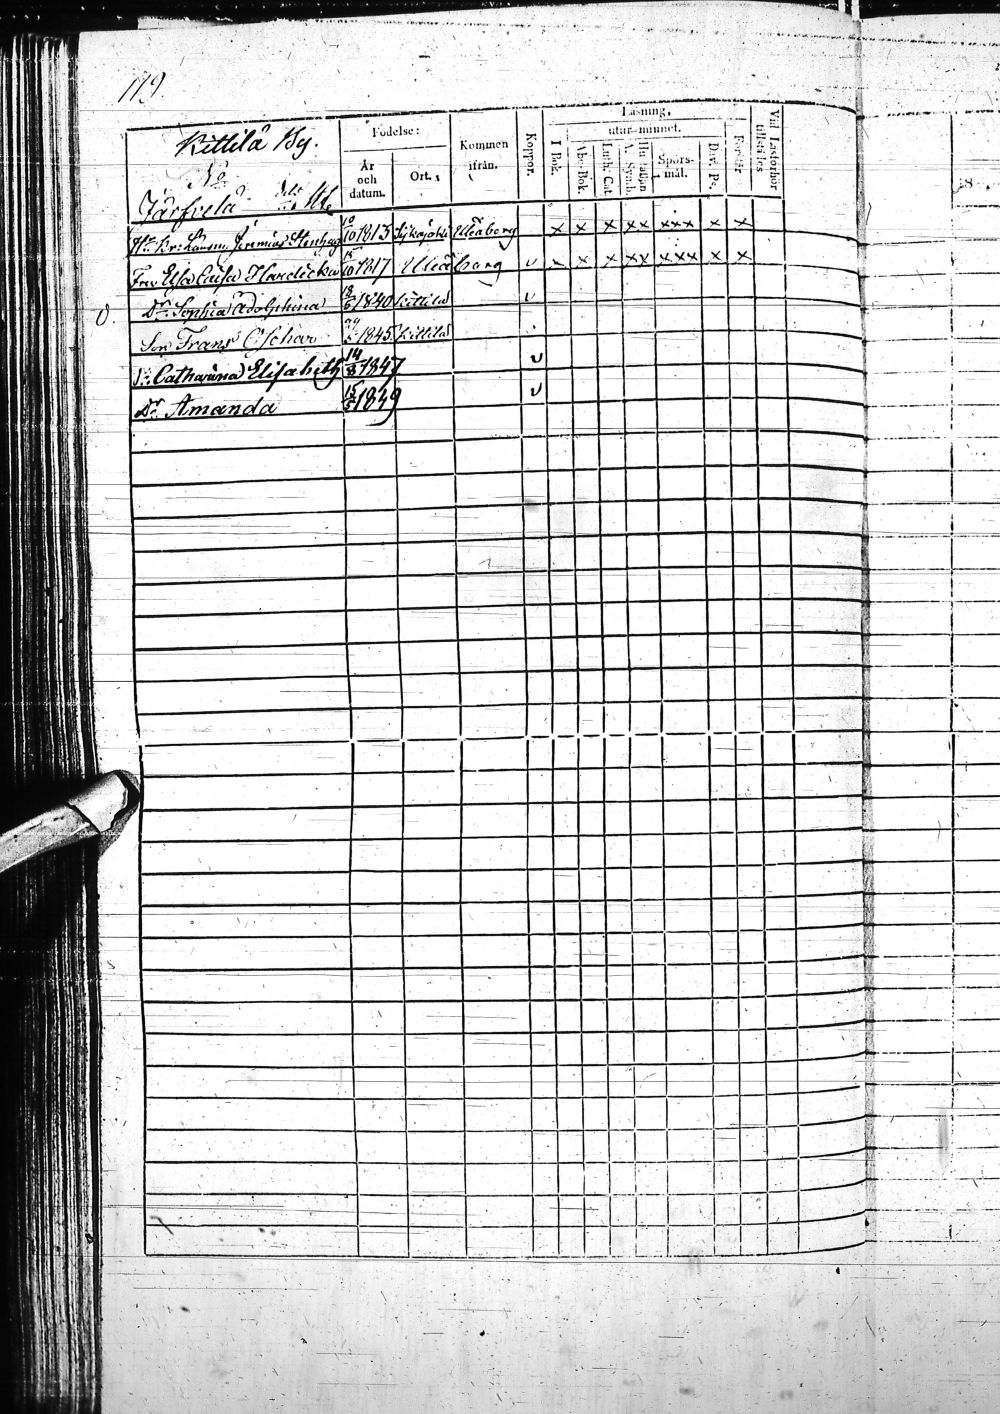 119.
Kittilä By.
No
Järfvelä
Födelse:
År och datum.
Ort.
Kommen ifrån.
Koppor.
Läsning,
utur minnet.
I Bok.
Abc-Bok.
Luth. Cat.
A. Symb.
Hustaflan
Spörs-mål.
Dav. Ps.
Förstår
Vid Läsförhör tillstädes
Hr Kr: Länsm. Jeremias Stenhag 10/10 1813 Sijkajoki Uleåborg x x x xx xxx x x
Fru Elsa Caisa Hardicka 15/10 1817 Uleåborg v x x x xx xxx x x
Dr Sophia Adolphina 18/6 1840 Kittilä v
Son Frans Oschar 1845 Kittilä
Dr Catharina Elisabeth 14/8 1847 v
Dr Amanda 15/5 1849 v
18